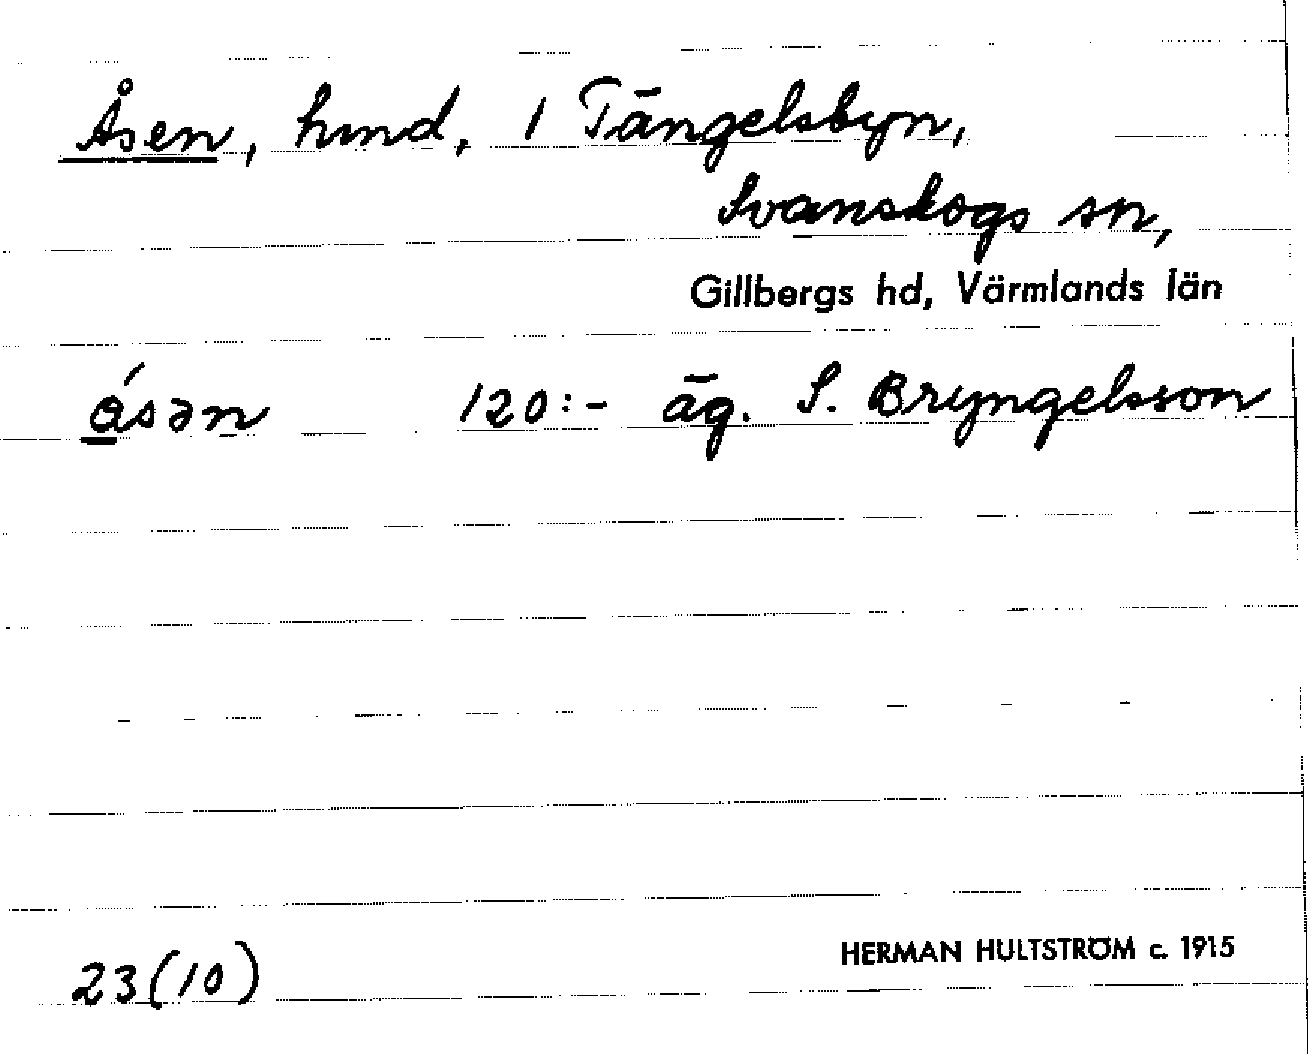 Åsen, hmd, 1 Tängelsbyn,
Svanskogs sn,
Gillbergs hd, Värmlands län
åsən 120:- äg. S. Bryngelsson
23(10)
HERMAN HULTSTRÖM c. 1915